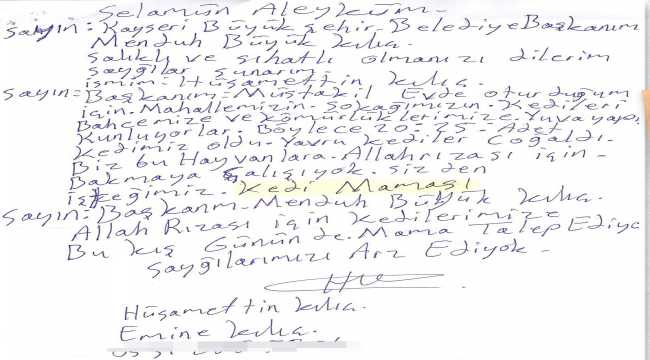 Selamün Aleyküm-
Sayın: Kayseri Büyük şehir- Belediye Başkanım
Menduh Büyük kılıa.
salıklı ve sıhatlı olmanızı dilerim
saygılar sunarım
ismim- Hüsamettin kılıa.
Sayın= Başkanım- Müstakil Evde oturduğum
için- Mahallemizin- Sokağımızın- Kedileri
Bahçemize ve kömürlüklerimize- Yuva yapı
Kunluyorlar- Böylece 20-25- Adet
Kedimiz oldu- Yavru kediler Coğaldı-
Biz bu Hayvanlara- Allahrızası için-
Bakmaya çalışıyok sizden
isteğimiz- Kedi Maması
Sayın: Başkanım- Menduh Büyük kılıa.
Allah Rızası için kedilerimize
Bu kış Günün de- Mama Talep Ediyo
Saygılarımızı Arz Ediyok-
Hüsamettin kılıa.
Emine kılıa.